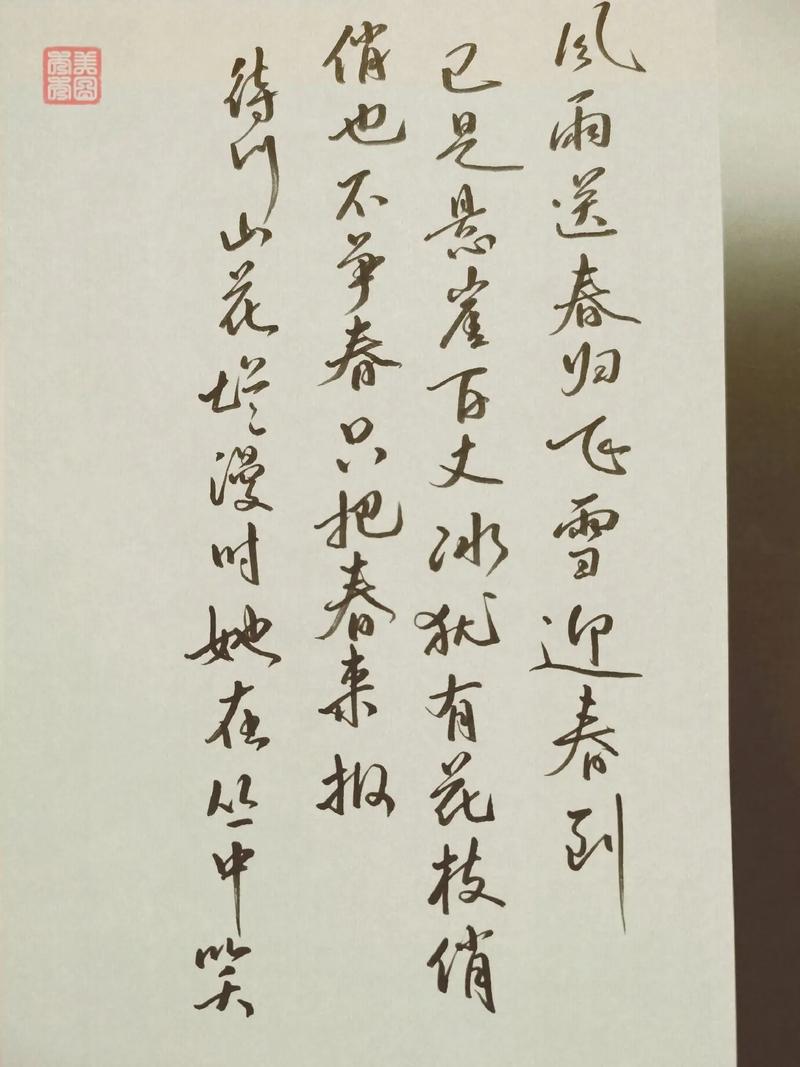 风雨送春归飞雪迎春到
已是悬崖百丈冰犹有花枝俏
俏也不争春只把春来报
待到山花烂漫时她在丛中笑
美图秀秀